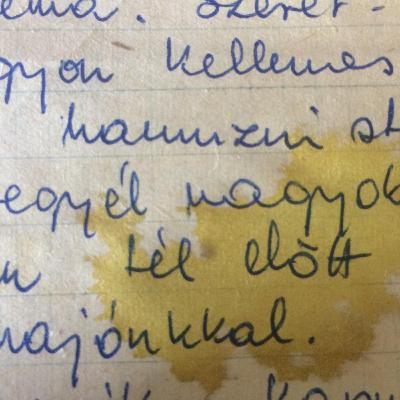 ema. Szeret-
gyon kellemes
hamizni st
egyél nagyob
n tél előtt
najónkkal.